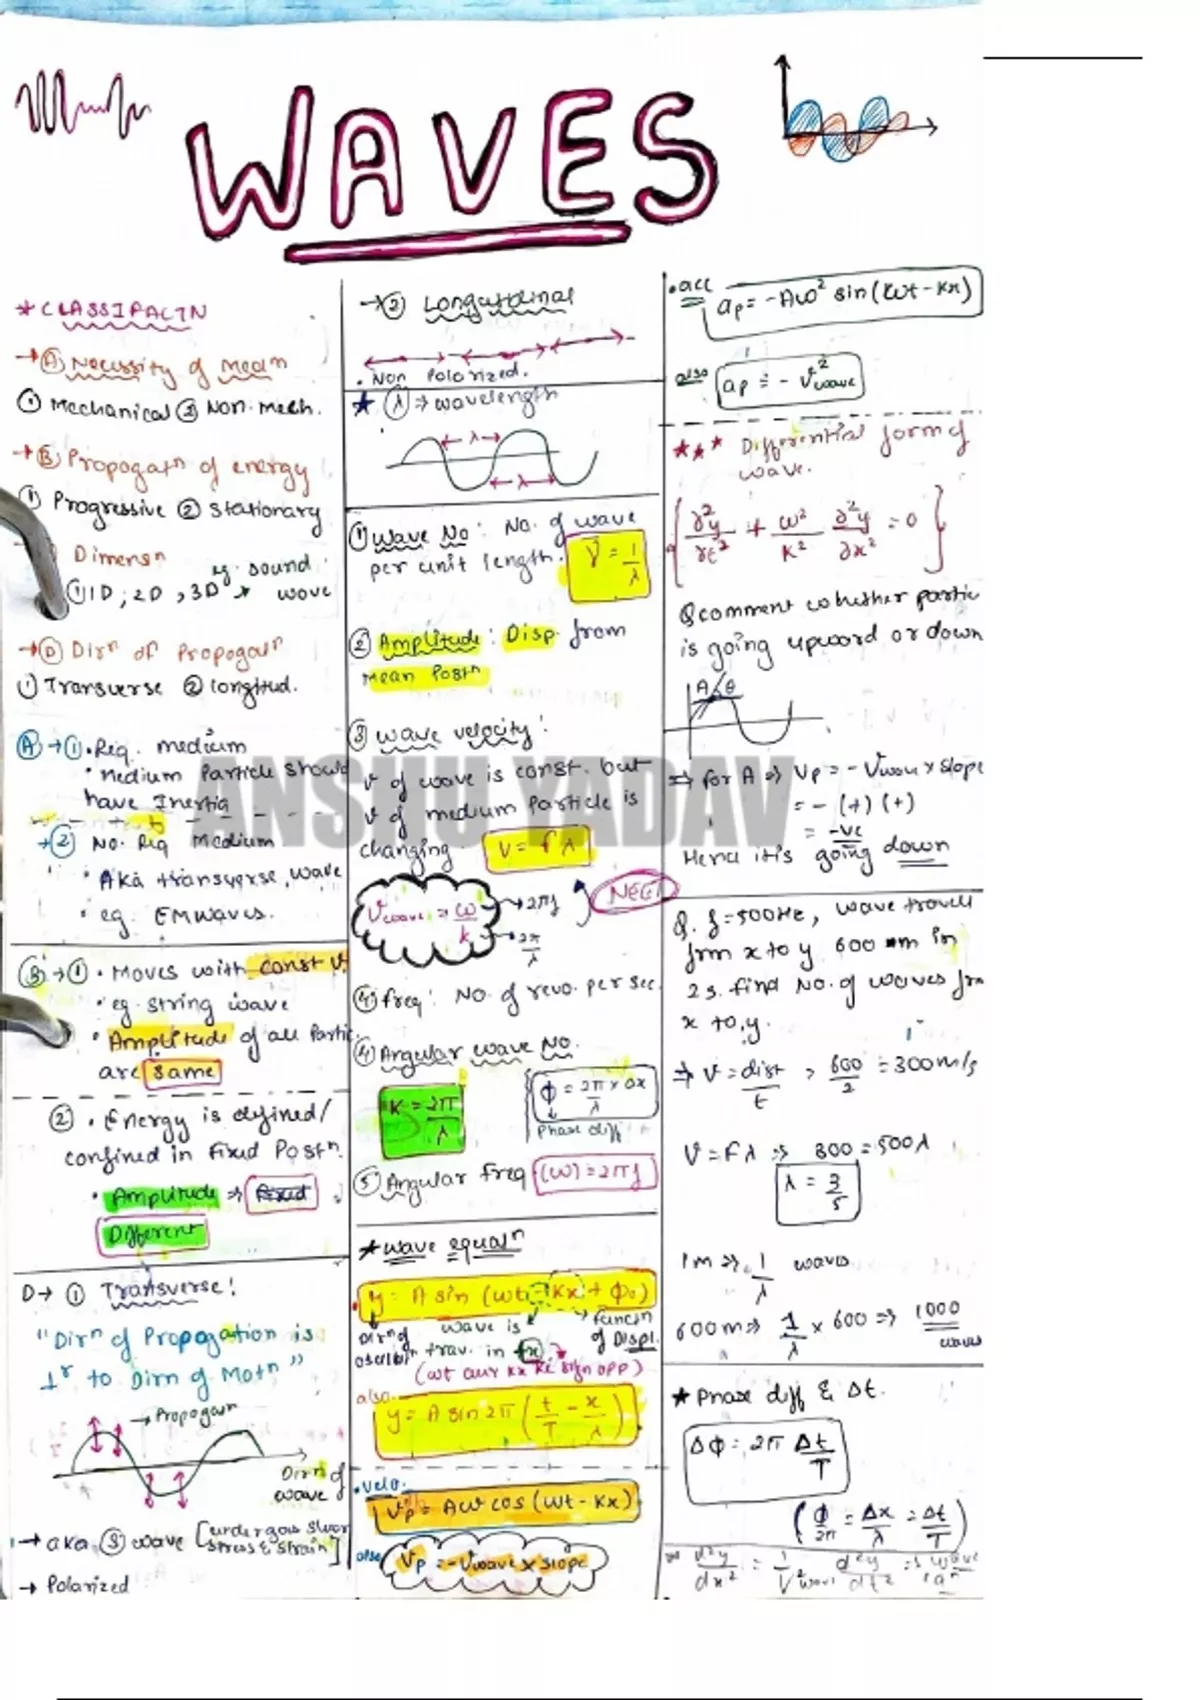 WAVES
* CLASSIFACTN
→ (A) Necessity of Mean
① Mechanical ② Non-mech.
→ (B) Propogatn of energy
① Progressive ② Stationary
Dimensn
① 1D, 2D, 3D → eg. sound wave
→ (D) Dirn of Propogatn
① Transverse ② longitud.
(A) → ① • Req. medium
• Medium Particle should
have Inertia
→ ② No. Req Medium
• Aka transverse wave
• eg. EM waves.
(B) → ① • Moves with const V.
• eg. string wave
• Amplitude of all Partic
are same
② • Energy is defined/
confined in Fixed Postn.
• Amplitude ⇒ Fixed
Different
D → ① Transverse!
"Dirn of Propogation is
⊥r to Dirn of Motn"
→ Propogatn
Dirn of
wave
→ aka (S) wave [undergoes shear
stress & strain]
→ Polarized
→ ② Longitudinal
• Non Polarized.
★ (λ) → wavelength
λ
λ
① Wave No: No. of wave
per unit length. ν̄ = 1/λ
② Amplitude: Disp. from
Mean Postn
③ Wave velocity:
v of wave is const. but
v of medium particle is
changing. V = fλ
Vwave = ω/k → 2πf
→ 2π/λ
NEET
④ freq: No. of revo. per sec.
④ Angular wave No.
K = 2π/λ
ϕ = 2π/λ × Δx
Phase diff
⑤ Angular freq (ω) = 2πf
★ Wave equatn
y = A sin (ωt - Kx + ϕ₀)
wave is
trav. in +x
→ functn
of Displ.
(ωt aur kx ke sign opp)
also
y = A sin 2π (t/T - x/λ)
• velo.
Vp = Aω cos (ωt - Kx)
also Vp = -Vwave × slope
• acc
ap = -Aω² sin (ωt - Kx)
also
★★★ Differential form of
wave.
{ ∂²y/∂t² + ω²/K² ∂²y/∂x² = 0 }
Q comment whether partic
is going upward or down
A θ
⇒ for A ⇒ Vp = - Vwave × slope
= - (+) (+)
= -ve
Hence it is going down
Q. f = 500Hz, wave travel
from x to y 600 m in
2s. find No. of waves fro
x to y.
⇒ V = dist/t , 600/2 = 300 m/s
V = fλ ⇒ 300 = 500λ
λ = 3/5
1m ⇒ 1/λ waves
600m ⇒ 1/λ × 600 ⇒ 1000
waves
★ Phase diff & Δt.
Δϕ = 2π Δt/T
( ϕ/2π = Δx/λ = Δt/T )
d²y/dx² = 1/V²wave d²y/dt² ⇒ wave
ANSHU YADAV